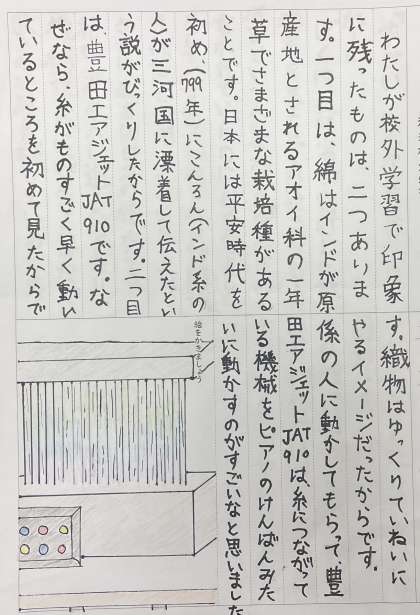 わたしが校外学習で印象
に残ったものは、二つありま
す。一つ目は、綿はインドが原
産地とされるアオイ科の一年
草でさまざまな栽培種がある
ことです。日本には平安時代を
初め、(799年)にこんろん(インド系の
人)が三河国に漂着して伝えたとい
う説がびっくりしたからです。二つ目
は、豊田エアジェットJAT910です。な
ぜなら、糸がものすごく早く動い
ているところを初めて見たからで
す。織物はゆっくりていねいに
やるイメージだったからです。
係の人に動かしてもらって、豊
田エアジェットJAT910は、糸につながって
いる機械をピアノのけんばんみた
いに動かすのがすごいなと思いました
絵をかきましょう